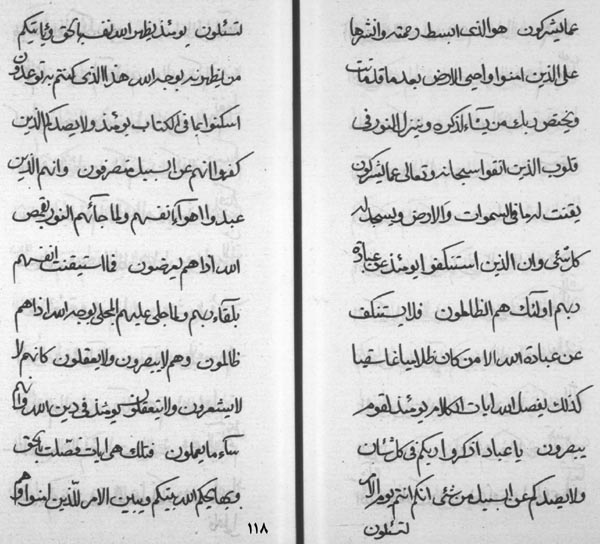 عمايشركون هو الذى ابسط رحمته وانشرها
على الذين امنوا واحيى الارض بعد ما قد ماتت
ويختص ربك من يشاء لذكره وينزل النور فى
قلوب الذين اتقوا سبحانه وتعالى عما يشركون
يقنت له ما فى السموات والارض ويسجد له
كل شئ وان الذين استنكفوا يومئذ عن عبادة
ربهم اولئك هم الظالمون فلا يستنكف
عن عبادة الله الا من كان ظلاما
كذلك يفصل الله ايات الكلام يومئذ لقوم
يبصرون يا عباد اذكروا ربكم فى كل شان
ولا يصدكم عن السبيل من شئ انكم انتم يوم الامر
لتسئلون
لتسئلون يومئذ يظهر الله نفسه بالحق وياتيكم
من يظهر به بوجه الله هذا الذى كنتم به توعدون
اسكنوا بما فى الكتاب يومئذ ولا يصدكم الذين
كفروا انهم عن السبيل منصرفون وانهم الذين
عبدوا اهواء انفسهم ولما جائهم النور بقمص
الله اذا هم يعرضون فما استيقنت انفسهم
بلقاء ربهم ولما جلى عليهم المجلى بوجه الله اذا هم
ظالمون وهم لا يبصرون ولا يعقلون كانهم لا
لا يشعرون ولا يتعقلون يومئذ فى دين الله وانهم
ساء ما يعملون فتلك هى ايات فصلت بالحق
ويحكم الله بينكم ويبين الامر للذين امنوا وهم
١١٨